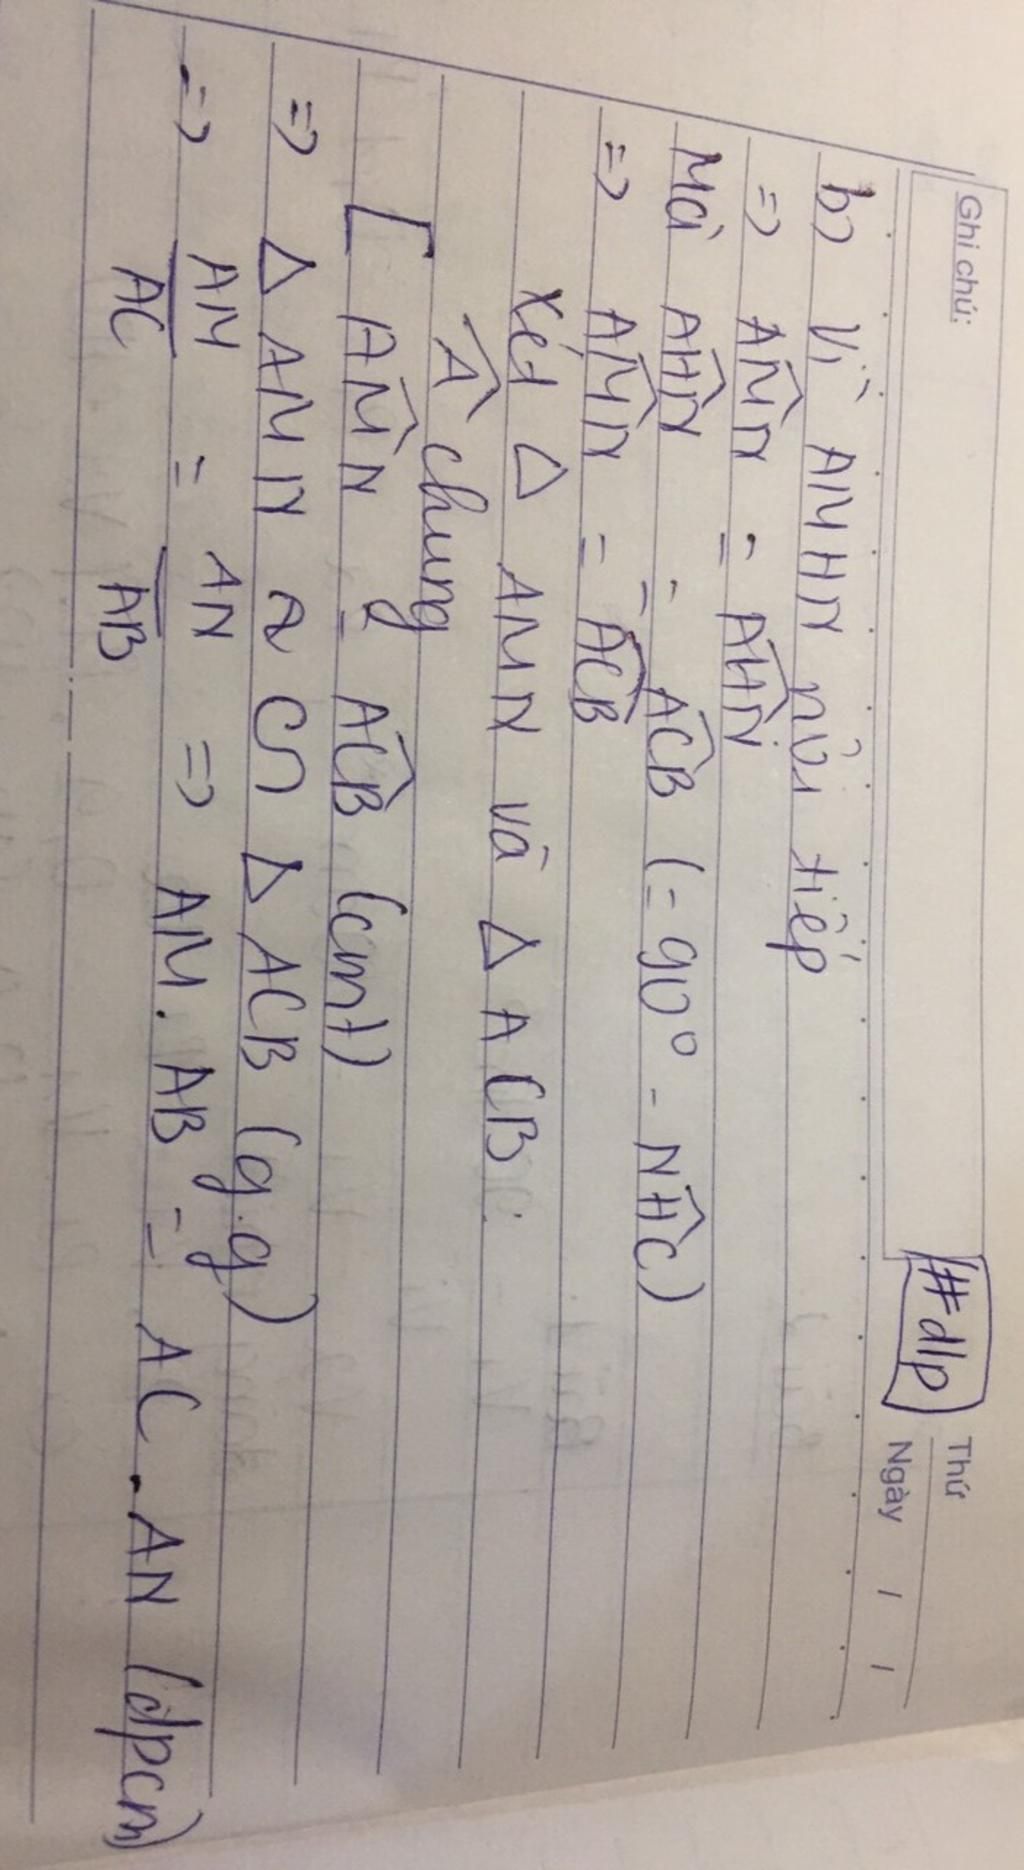 Ghi chú:
#dlp
Thứ
Ngày / /
b) Vì AMHN nội tiếp
=> AMN̂ = AHN̂
Mà AHN̂ = ACB̂ (= 90° - NHĈ)
=> AMN̂ = ACB̂
Xét Δ AMN và Δ ACB:
Â chung
[ AMN̂ = ACB̂ (cmt)
=> Δ AMN ~ ᔕ Δ ACB (g.g)
=> AM/AC = AN/AB => AM. AB = AC. AN (dpcm)